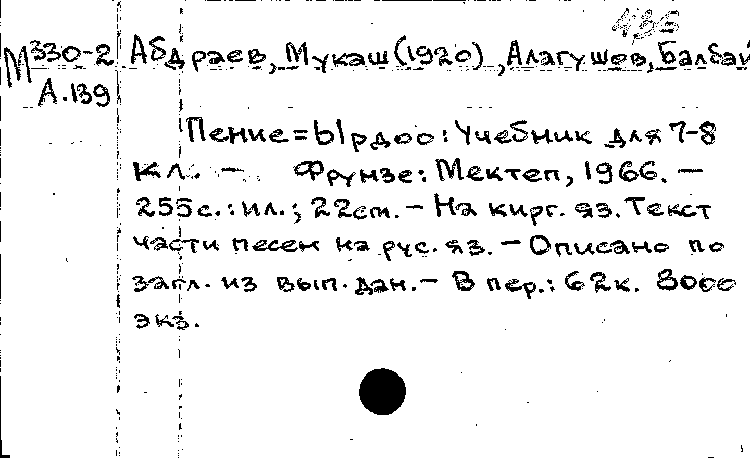 435
М330-2 Абдраев, Мукаш (1920), Алагушов, Балбай
А.139
Пение=Ырдоо: Учебник для 7-8
кл. — Фрунзе: Мектеп, 1966. —
255с.: ил.; 22cm. — На кирг. яз. Текст
части песен на рус. яз. — Описано по
загл. из вып. дан. — В пер.: 62к. 8000
экз.